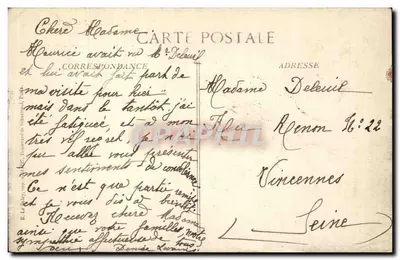 Chere Madame
CARTE POSTALE
Maurice avait vu Mr Deleuil
CORRESPONDANCE
ADRESSE
et lui avait fait part de
ma visite pour hier
mais dans le tantôt j'ai
été fatiguée et à mon
très vif regret je n'ai
pu aller vous présenter
mes sentiments de condoléance
Ce n'est que partie remise
et je vous dis à bientôt
Recevez chere Madame
ainsi que votre famille notre
sympathie affectueuse de tous
Denise
Madame Deleuil
Menon No 22
Vincennes
(Seine)